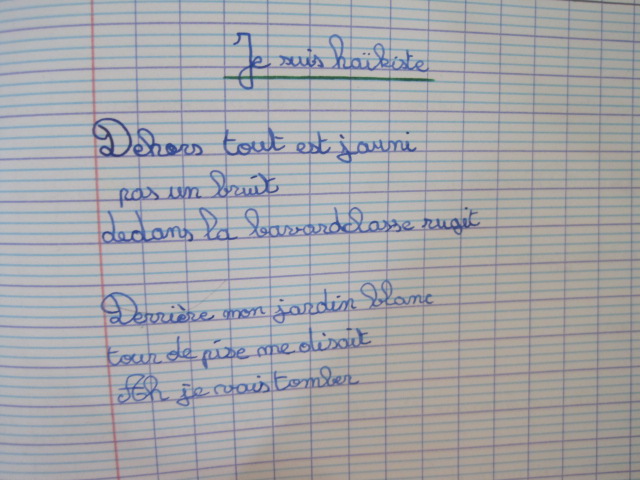 Je suis haïkiste
Dehors tout est jauni
pas un bruit
dedans la bavardclasse rugit
Derrière mon jardin blanc
tour de pise me disait
Ah je vais tomber